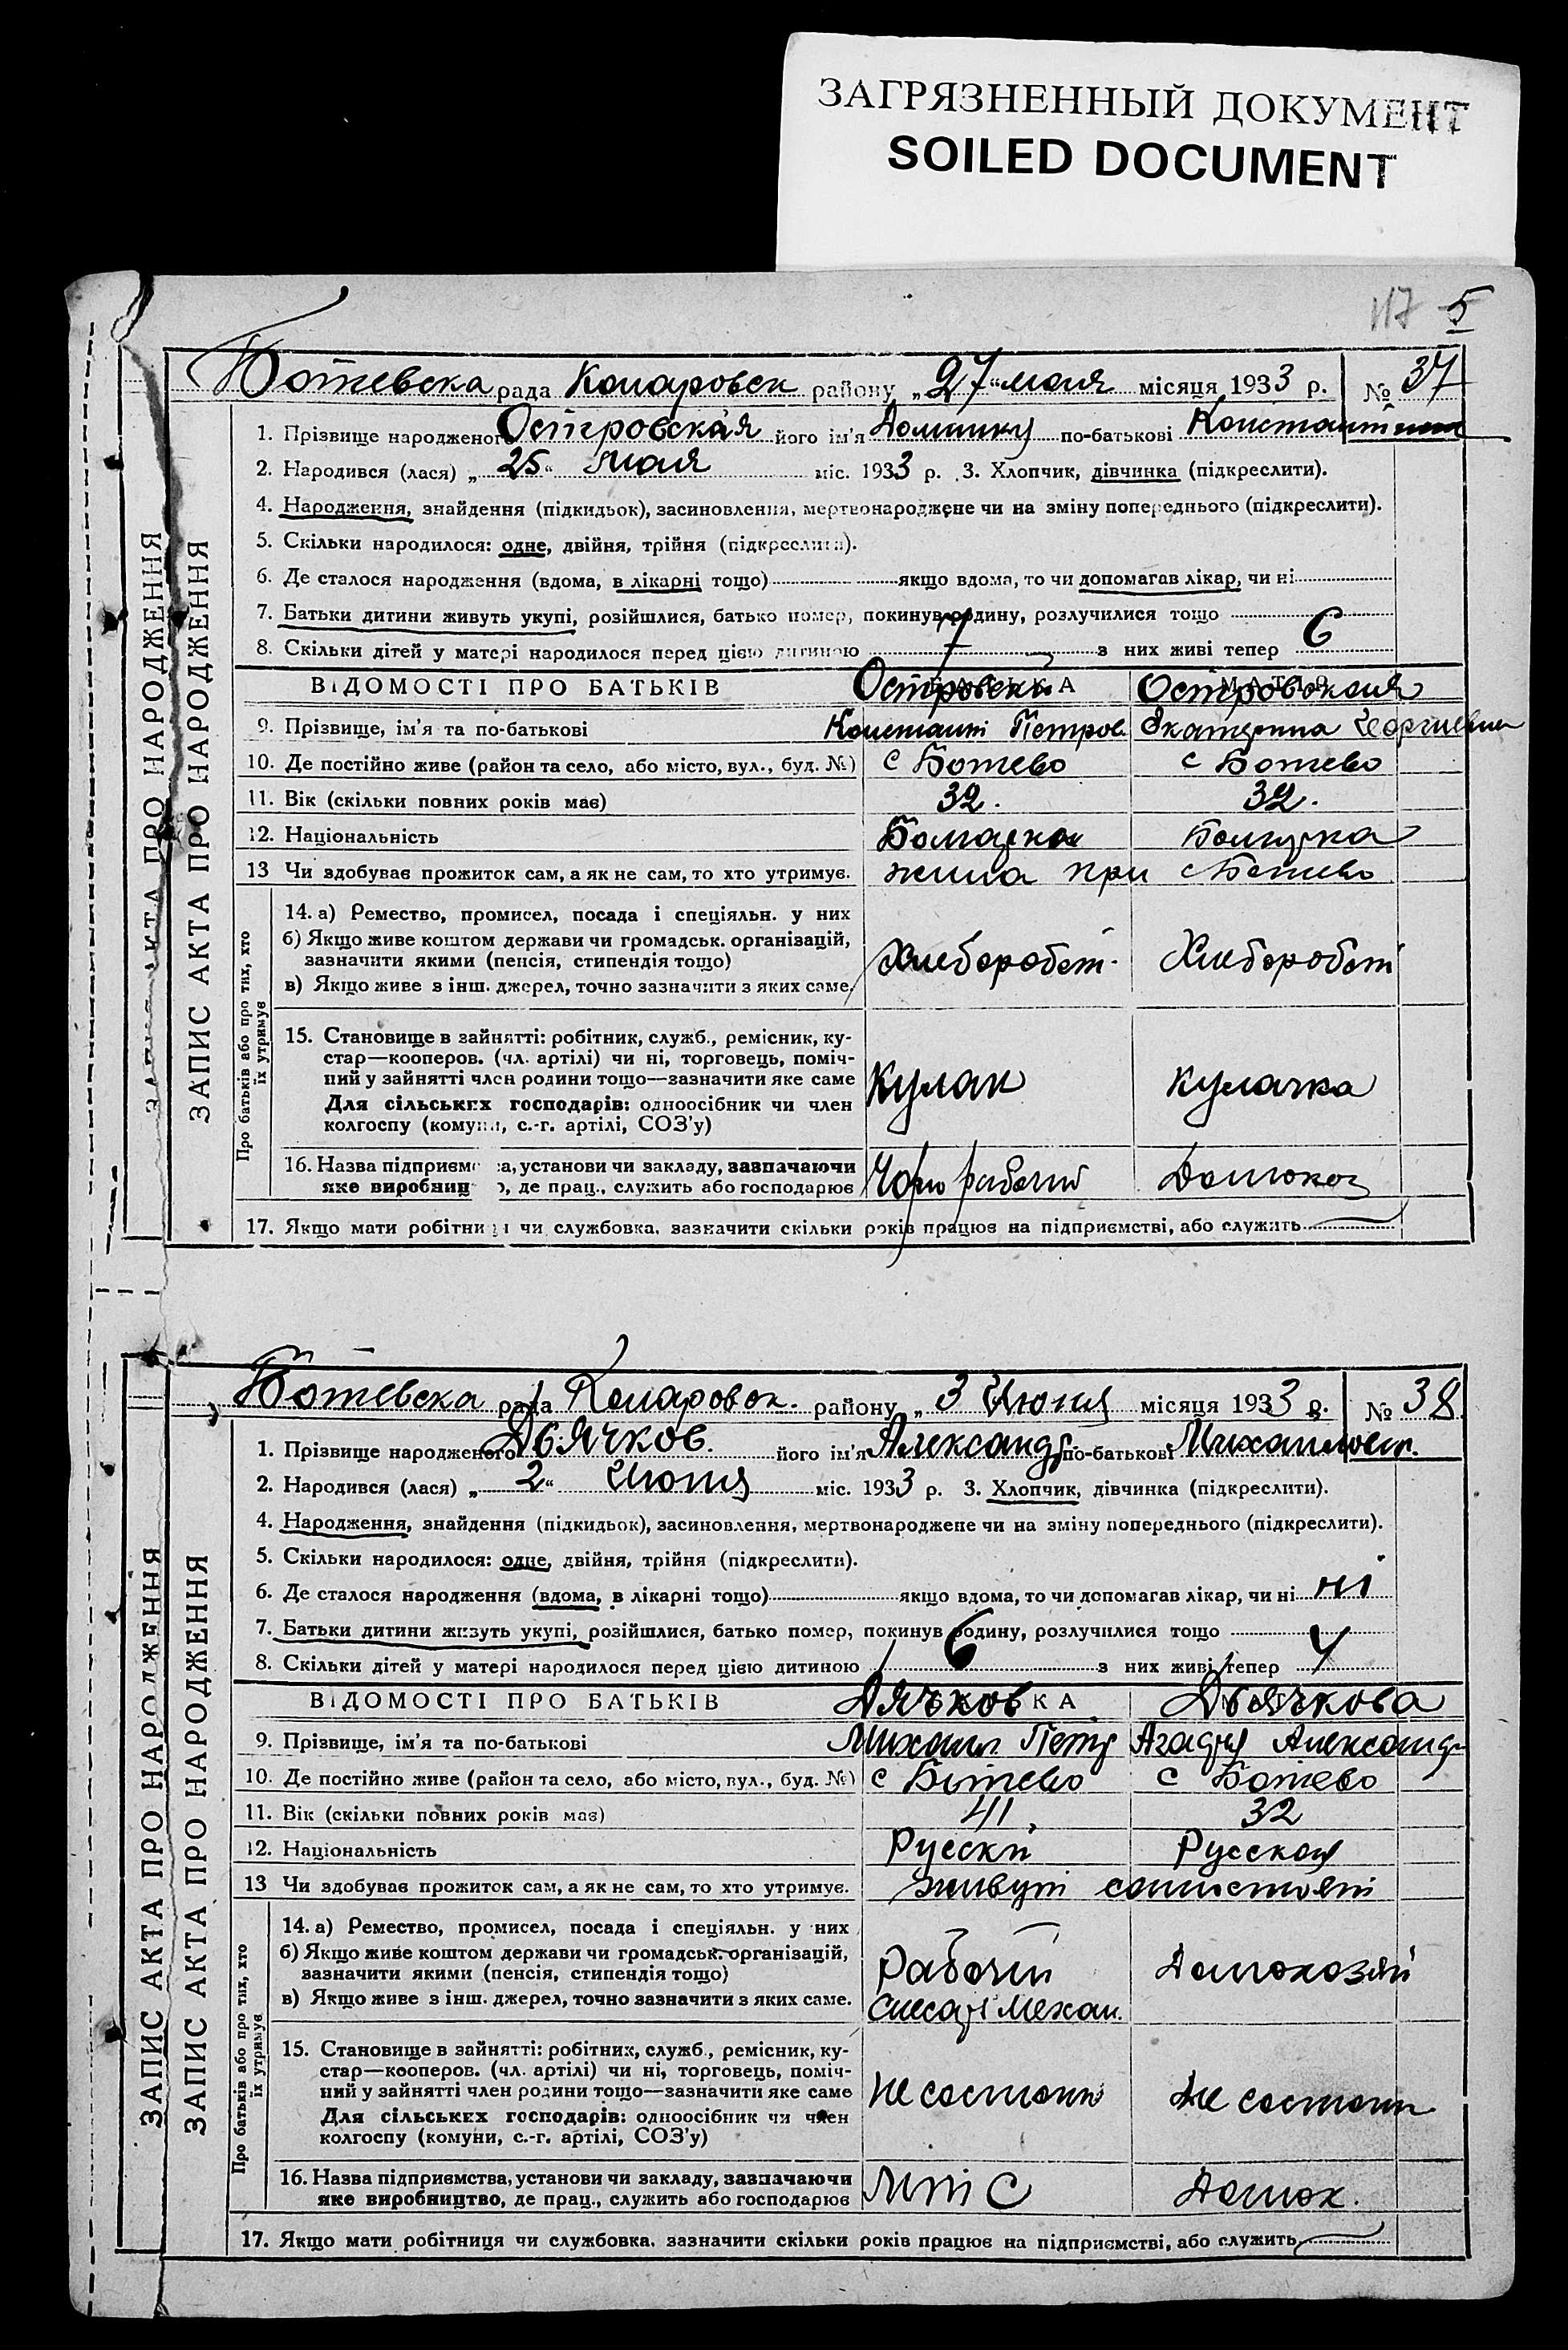 ЗАГРЯЗНЕННЫЙ ДОКУМЕНТ
SOILED DOCUMENT
117 5
Ботевска рада Комаровск району „27“ мая місяця 1933 р. № 37
ЗАПИС АКТА ПРО НАРОДЖЕННЯ
ЗАПИС АКТА ПРО НАРОДЖЕННЯ
1. Прізвище народженого Островская його ім'я по-батькові
2. Народився (лася) „25“ мая міс. 1933 р. 3. Хлопчик, дівчинка (підкреслити).
4. Народження, знайдення (підкидьок), засиновлення, мертвонароджене чи на зміну попереднього (підкреслити).
5. Скільки народилося: одне, двійня, трійня (підкреслити).
6. Де сталося народження (вдома, в лікарні тощо) якщо вдома, то чи допомагав лікар, чи ні
7. Батьки дитини живуть укупі, розійшлися, батько помер, покинув родину, розлучилися тощо
8. Скільки дітей у матері народилося перед цією дитиною 7 з них живі тепер 6
ВІДОМОСТІ ПРО БАТЬКІВ Островски Островская
9. Прізвище, ім'я та по-батькові Констант Петров Екатерина Георгиевна
10. Де постійно живе (район та село, або місто, вул., буд. №) с Ботево с Ботево
11. Вік (скільки повних років має) 32. 32.
12. Національність Болгарка
13 Чи здобуває прожиток сам, а як не сам, то хто утримує. при с Ботево
Про батьків або про тих, хто їх утримує
14. а) Ремество, промисел, посада і спеціяльн. у них
б) Якщо живе коштом держави чи громадськ. організацій,
зазначити якими (пенсія, стипендія тощо) Хлебороб Хлебороб
в) Якщо живе з інш. джерел, точно зазначити з яких саме.
15. Становище в зайнятті: робітник, служб., ремісник, ку-
стар—кооперов. (чл. артілі) чи ні, торговець, поміч-
ний у зайнятті член родини тощо—зазначити яке саме Кулак кулачка
Для сільських господарів: одноосібник чи член
колгоспу (комуни, с.-г. артілі, СОЗ'у)
16. Назва підприємства, установи чи закладу, зазначаючи
яке виробництво, де прац., служить або господарює Чорно рабочий Домохоз
17. Якщо мати робітниця чи службовка, зазначити скільки років працює на підприємстві, або служить
Ботевска рада Комаровск. району „3 Июня місяця 1933 р. № 38
ЗАПИС АКТА ПРО НАРОДЖЕННЯ
ЗАПИС АКТА ПРО НАРОДЖЕННЯ
1. Прізвище народженого Дьячков. його ім'я Александр по-батькові
2. Народився (лася) „2“ Июня міс. 1933 р. 3. Хлопчик, дівчинка (підкреслити).
4. Народження, знайдення (підкидьок), засиновлення, мертвонароджене чи на зміну попереднього (підкреслити).
5. Скільки народилося: одне, двійня, трійня (підкреслити).
6. Де сталося народження (вдома, в лікарні тощо) якщо вдома, то чи допомагав лікар, чи ні ні
7. Батьки дитини живуть укупі, розійшлися, батько помер, покинув родину, розлучилися тощо
8. Скільки дітей у матері народилося перед цією дитиною 6 з них живі тепер 4
ВІДОМОСТІ ПРО БАТЬКІВ Дячков Дьячкова
9. Прізвище, ім'я та по-батькові Михаил Петр Александр
10. Де постійно живе (район та село, або місто, вул., буд. №) с Ботево с Ботево
11. Вік (скільки повних років має) 41 32
12. Національність Русскй Русская
13 Чи здобуває прожиток сам, а як не сам, то хто утримує. живут
Про батьків або про тих, хто їх утримує
14. а) Ремество, промисел, посада і спеціяльн. у них
б) Якщо живе коштом держави чи громадськ. організацій,
зазначити якими (пенсія, стипендія тощо) Рабочий Домохозяй
в) Якщо живе з інш. джерел, точно зазначити з яких саме. Слесарь Механ.
15. Становище в зайнятті: робітник, служб., ремісник, ку-
стар—кооперов. (чл. артілі) чи ні, торговець, поміч-
ний у зайнятті член родини тощо—зазначити яке саме Не Не
Для сільських господарів: одноосібник чи член
колгоспу (комуни, с.-г. артілі, СОЗ'у)
16. Назва підприємства, установи чи закладу, зазначаючи
яке виробництво, де прац., служить або господарює МТС Домох.
17. Якщо мати робітниця чи службовка, зазначити скільки років працює на підприємстві, або служить